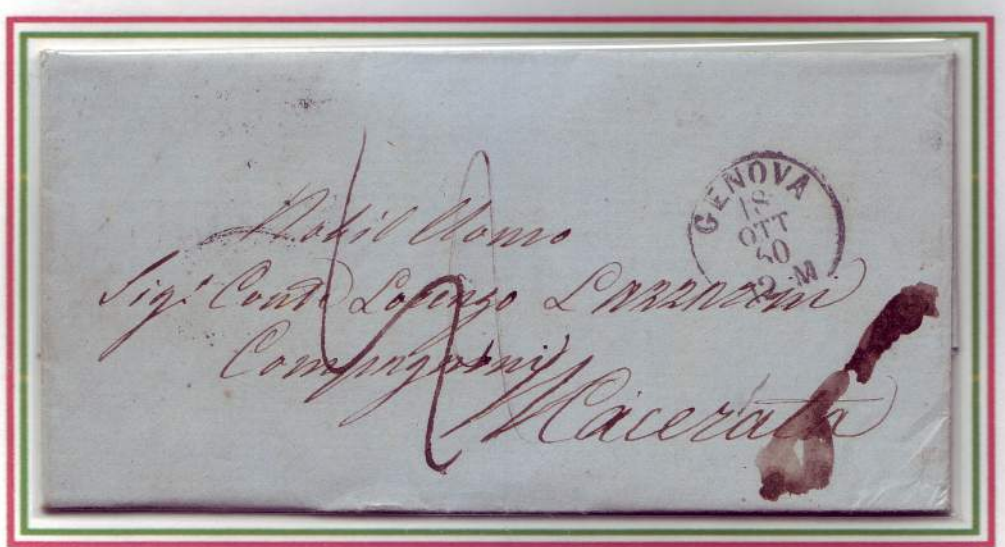 GENOVA
18
OTT
60
2 M
Nobil Uomo
Sig.r Conte Lorenzo Lazzarini
Compagnoni
Macerata